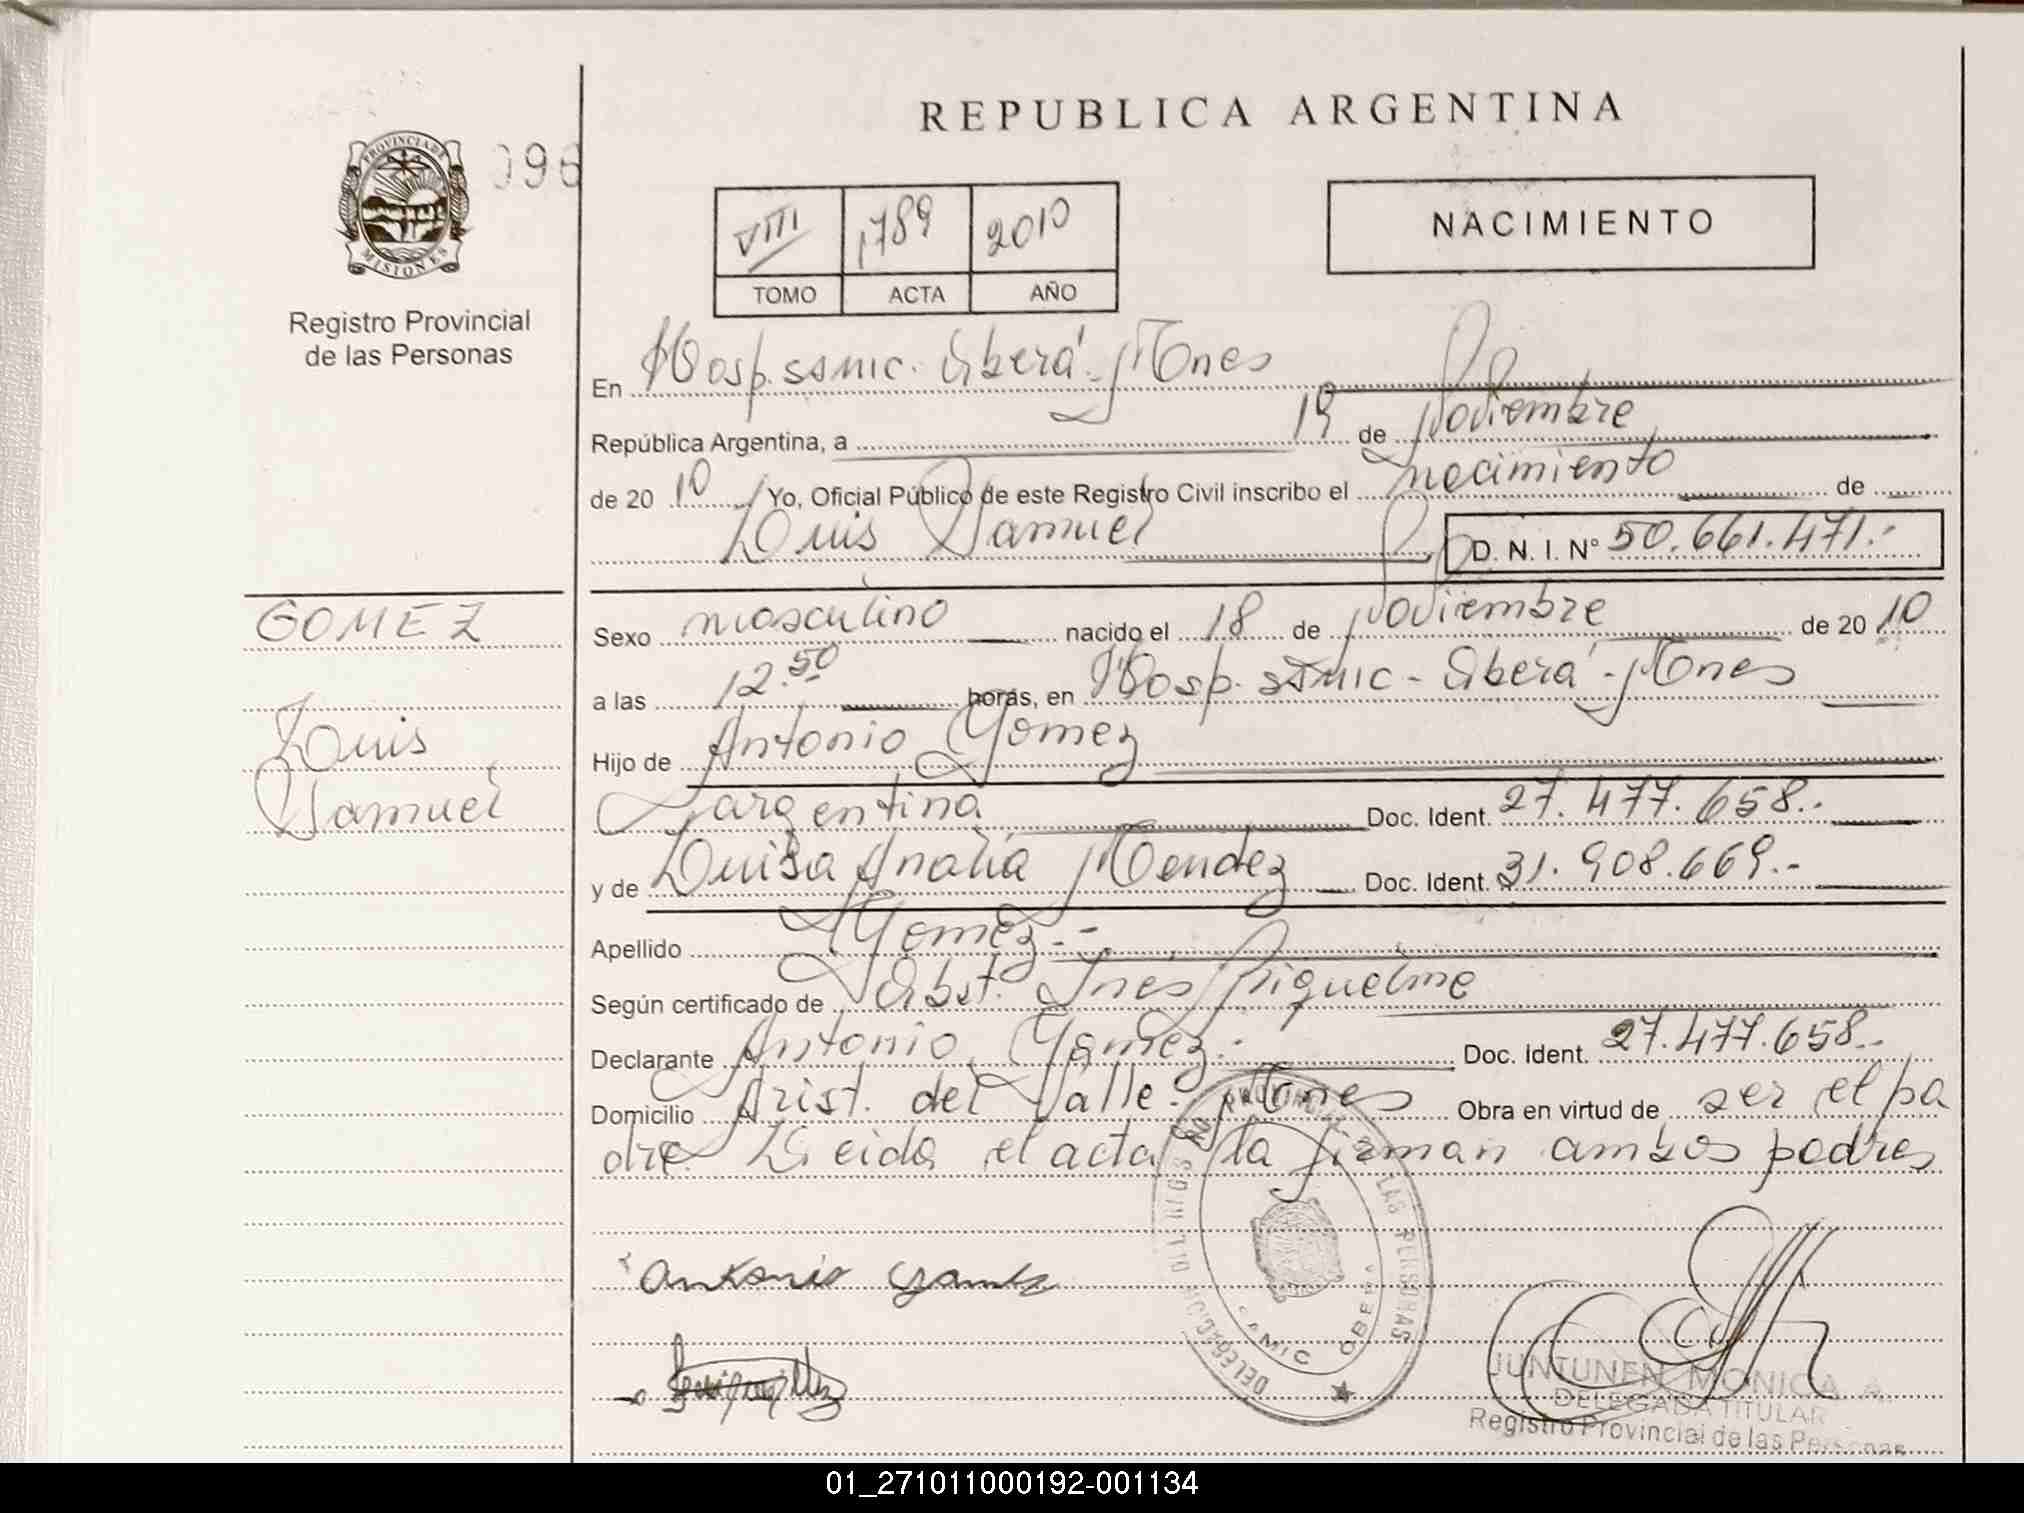 REPUBLICA ARGENTINA
PROVINCIA DE MISIONES
096
Registro Provincial
de las Personas
VIII 1789 2010
TOMO ACTA AÑO
NACIMIENTO
En Hosp. SAMIC. Oberá - Mnes
República Argentina, a 19 de Noviembre
de 2010 Yo, Oficial Público de este Registro Civil inscribo el nacimiento de
Luis Samuel D. N. I. Nº 50.661.471.-
GOMEZ
Luis
Samuel
Sexo masculino nacido el 18 de Noviembre de 2010
a las 12.50 horas, en Hosp. SAMIC - Oberá - Mnes
Hijo de Antonio Gomez
argentina Doc. Ident. 27.477.658.-
y de Luisa Analia Mendez Doc. Ident. 31.908.669.-
Apellido Gomez.-
Según certificado de Obst. Ines Piquelme
Declarante Antonio Gomez.- Doc. Ident. 27.477.658.-
Domicilio Arist. del Valle - Mnes Obra en virtud de ser el pa
dre. Leida el acta la firman ambos padres
Antonio Gomez
DELEGACION
LAS PERSONAS
SAMIC OBERA
JUNTUNEN MONICA A.
DELEGADA TITULAR
Registro Provincial de las Personas
01_271011000192-001134